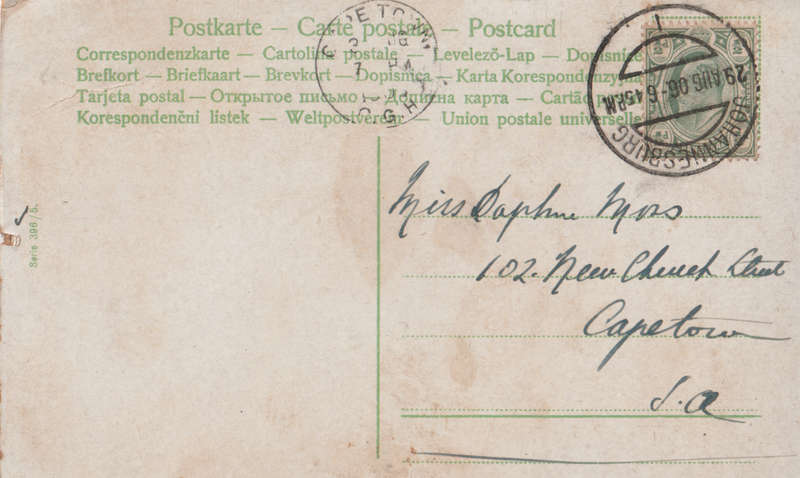 Postkarte — Carte postale — Postcard
Correspondenzkarte — Cartolina postale — Levelező-Lap — Dopisnice
Brefkort — Briefkaart — Brevkort — Dopisnica — Karta Korespondenzyjna
Tarjeta postal — Открытое письмо — Дописна карта — Cartão
Korespondenční listek — Weltpostverein — Union postale universelle
CAPE TOWN
JOHANNESBURG
29 AUG 06·6 45 P.M.
1
Serie 396/5.
Miss Daphne Moss
102. New Church Street
Capetown
S.A